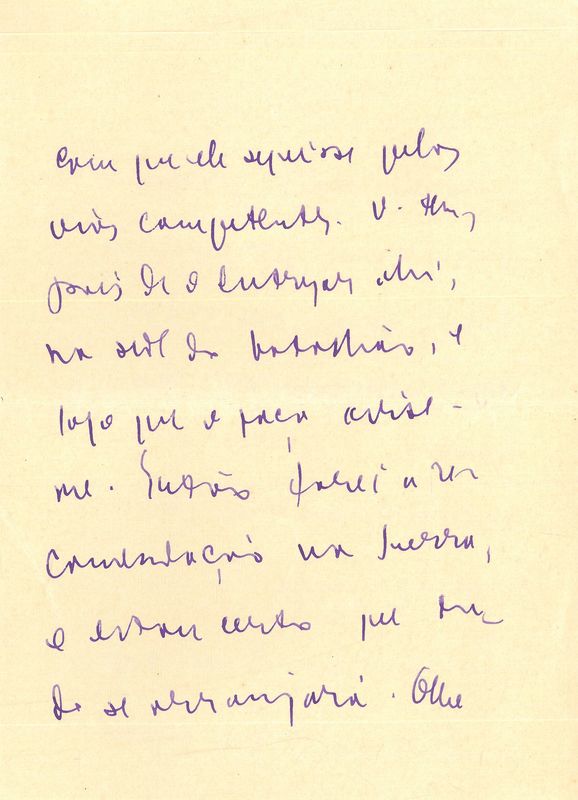 com que ele seguisse pelas
vias competentes. V. tem,
pois de o entregar ahi,
na séde do batalhão, e
logo que o faça avise-
me. Então farei a re
comendação na Guerra,
e estou certo que tu
do se arranjará. Olhe